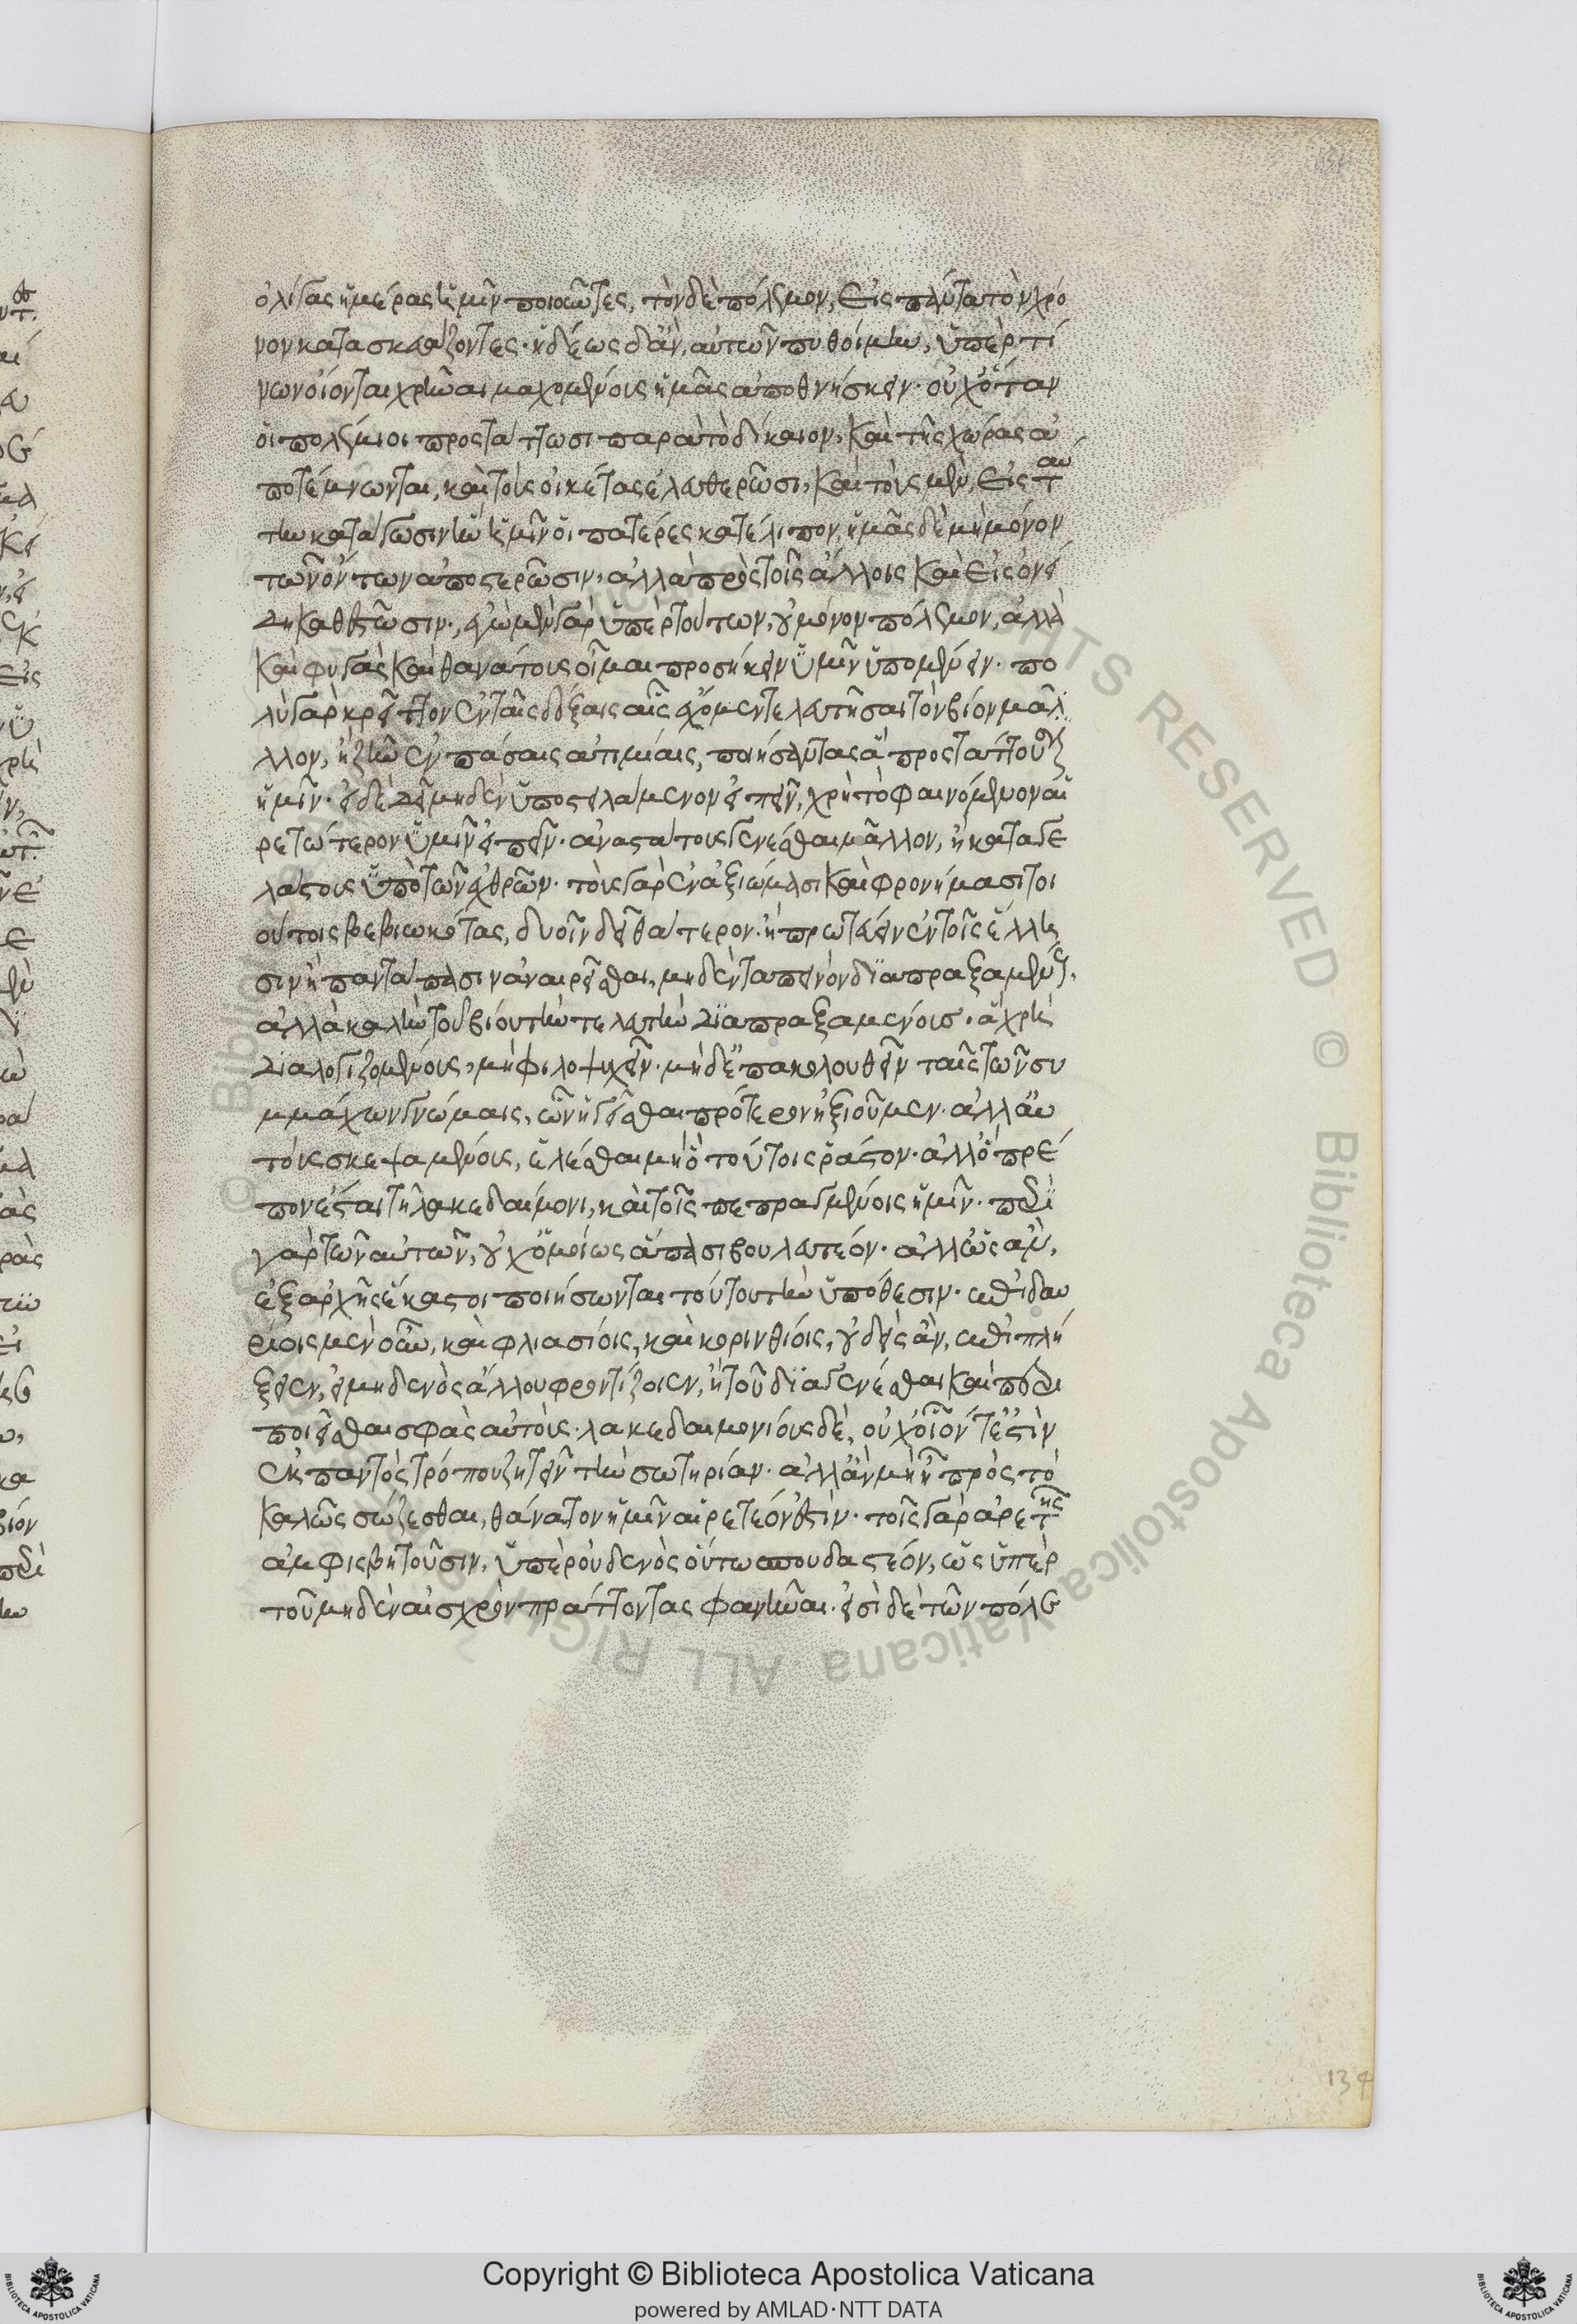 ὀλίγας ἡμέρας ἡμῖν ποιοῦντες, τὸν δὲ πόλεμον, εἰς πάντα τὸν χρό
νον κατασκευάζοντες· ἡδέως δ' ἂν, αὐτῶν πυθοίμην, ὑπὲρ τί
νων οἴονται χρῆναι μαχομένοις ἡμᾶς ἀποθνήσκειν· οὐχ ὅταν
οἱ πολέμιοι προστάττωσι παρὰ τὸ δίκαιον, καὶ τῆς χώρας ἀ
ποτέμνωνται, καὶ τοὺς οἰκέτας ἐλευθερῶσι, καὶ τοὺς μὲν, εἰς ταύ
την καταγωσιν ἣν ἡμῖν οἱ πατέρες κατέλιπον, ἡμᾶς δὲ μὴ μόνον
τῶν ὄντων ἀποστερῶσιν, ἀλλὰ πρὸς τοῖς ἄλλοις καὶ εἰς ὀνεί
δη καθιστῶσιν·, ἐγὼ μὲν γὰρ ὑπὲρ τούτων, οὐ μόνον πόλεμον, ἀλλὰ
καὶ φυγὰς καὶ θανάτους οἶμαι προσήκειν ὑμῖν ὑπομένειν· πο
λὺ γὰρ κρεῖττον ἐν ταῖς δόξαις αἷς ἔχομεν τελευτῆσαι τὸν βίον μᾶλ
λλον, ἢ ζῆν ἐν πάσαις ἀτιμίαις, ποιήσαντας ἃ προστάττουσιν
ἡμῖν· εἰ δὲ δεῖ μηδὲν ὑποστειλάμενον εἰπεῖν, χρὴ τὸ φαινόμενον αἱ
ρετώτερον ὑμῖν εἰπεῖν· ἀναστάτοις γενέσθαι μᾶλλον, ἢ καταγε
λάστους ὑπὸ τῶν ἐχθρῶν· τοὺς γὰρ ἐν ἀξιώμασι καὶ φρονήμασι τοι
ούτοις βεβιωκότας, δυοῖν δεῖ θάτερον· ἢ πρωτεύειν ἐν τοῖς ἕλλη
σιν ἢ παντάπασιν ἀναιρεῖσθαι, μηδὲν ταπεινὸν διαπραξαμένους,
ἀλλὰ καλὴν τοῦ βίου τὴν τελευτὴν διαπραξαμένοις· ἃ χρὴ
διαλογιζομένους, μὴ φιλοψυχεῖν· μηδ' ἐπακολουθεῖν ταῖς τῶν συ
μμάχων γνώμαις, ὧν ἡγεῖσθαι πρότερον ἠξιοῦμεν· ἀλλ' αὐ
τοὺς σκεψαμένους, ἑλέσθαι μὴ ὃ τούτοις ῥᾷστον· ἀλλ' ὃ πρέ
πον ἔσται τῇ λακεδαίμονι, καὶ τοῖς πεπραγμένοις ἡμῖν· περὶ
γὰρ τῶν αὐτῶν, οὐχ ὁμοίως ἅπασι βουλευτέον· ἀλλ' ὡς ἂν,
ἐξ ἀρχῆς ἕκαστοι ποιήσωνται τούτου τὴν ὑπόθεσιν· ἐπιδαυ
ρίοις μὲν οὖν, καὶ φλιασίοις, καὶ κορινθίοις, οὐδεὶς ἂν, ἐπιπλή
ξειεν, εἰ μηδενὸς ἄλλου φροντίζοιεν, ἢ τοῦ διαγενέσθαι καὶ περι
ποιεῖσθαι σφᾶς αὐτοὺς· λακεδαιμονίους δὲ, οὐχ οἷόν τ' ἐστὶν
ἐκ παντὸς τρόπου ζητεῖν τὴν σωτηρίαν· ἀλλ' ἂν μὴ ᾖ πρὸς τὸ
καλῶς σώζεσθαι, θάνατον ἡμῖν αἱρετέον ἐστίν· τοῖς γὰρ ἀρετῆς
ἀμφισβητοῦσιν, ὑπὲρ οὐδενὸς οὕτω σπουδαστέον, ὡς ὑπὲρ
τοῦ μηδὲν αἰσχρὸν πράττοντας φανῆναι· εἰσὶ δὲ τῶν πόλε
134
© Biblioteca Apostolica Vaticana ALL RIGHTS RESERVED
Copyright © Biblioteca Apostolica Vaticana
powered by AMLAD·NTT DATA